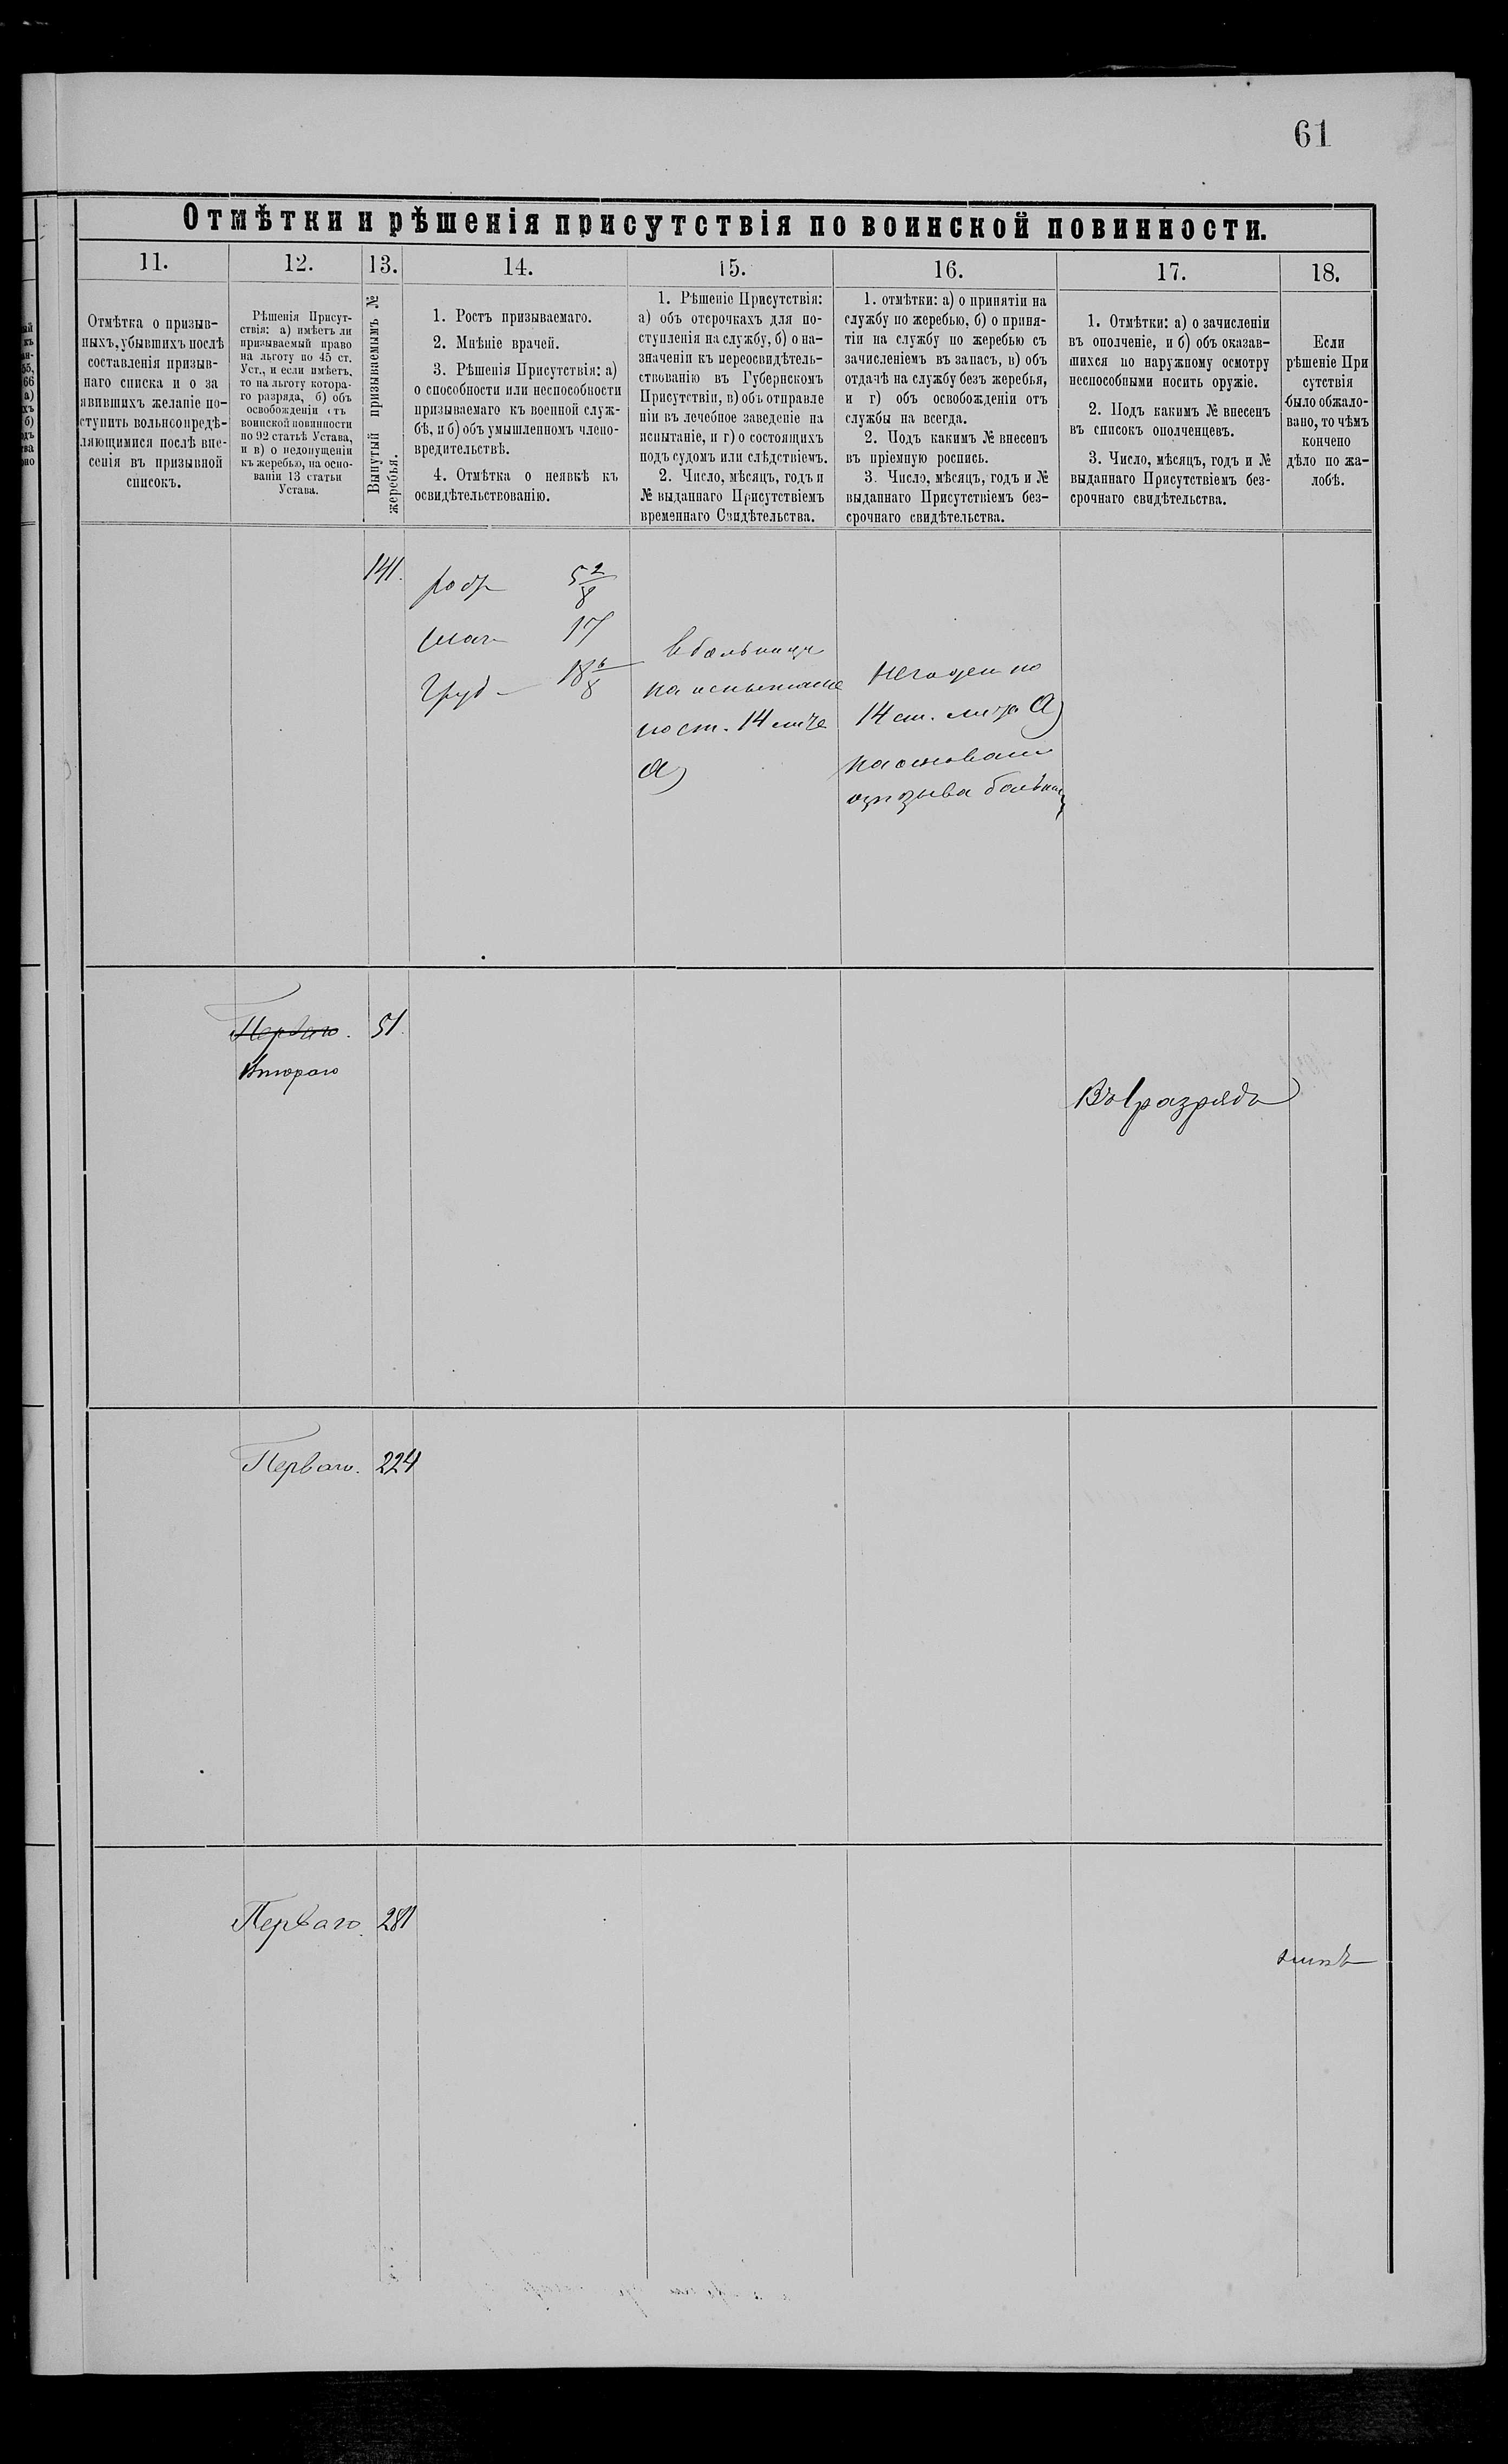 61
Отмѣтки и рѣшенія присутствія по воинской повинности.
11.
12.
13.
14.
15.
16.
17.
18.
Отмѣтка о призыв-
ныхъ, убывшихъ послѣ
составленія призыв-
наго списка и о за
явившихъ желаніе по-
ступить вольноопредѣ-
ляющимися послѣ вне-
сенія въ призывной
списокъ.
Рѣшенія Присут-
ствія: а) имѣетъ ли
призываемый право
на льготу по 45 ст.
Уст., и если имѣетъ,
то на льготу котора-
го разряда, б) объ
освобожденіи отъ
воинской повинности
по 92 статьѣ Устава,
и в) о недопущеніи
къ жеребью, на осно-
ваніи 13 статьи
Устава.
Вынутый призываемымъ №
жеребья.
1. Ростъ призываемаго.
2. Мнѣніе врачей.
3. Рѣшенія Присутствія: а)
о способности или неспособности
призываемаго къ военной служ-
бѣ, и б) объ умышленномъ члено-
вредительствѣ.
4. Отмѣтка о неявкѣ къ
освидѣтельствованію.
1. Рѣшеніе Присутствія:
а) объ отсрочкахъ для по-
ступленія на службу, б) о на-
значеніи къ переосвидѣтель-
ствованію въ Губернскомъ
Присутствіи, в) объ отправле
ніи въ лечебное заведеніе на
испытаніе, и г) о состоящихъ
подъ судомъ или слѣдствіемъ.
2. Число, мѣсяцъ, годъ и
№ выданнаго Присутствіемъ
временнаго Свидѣтельства.
1. отмѣтки: а) о принятіи на
службу по жеребью, б) о приня-
тіи на службу по жеребью съ
зачисленіемъ въ запасъ, в) объ
отдачѣ на службу безъ жеребья,
и г) объ освобожденіи отъ
службы на всегда.
2. Подъ какимъ № внесенъ
въ пріемную роспись.
3. Число, мѣсяцъ, годъ и №
выданнаго Присутствіемъ без-
срочнаго свидѣтельства.
1. Отмѣтки: а) о зачисленіи
въ ополченіе, и б) объ оказав-
шихся по наружному осмотру
неспособными носить оружіе.
2. Подъ какимъ № внесенъ
въ списокъ ополченцевъ.
3. Число, мѣсяцъ, годъ и №
выданнаго Присутствіемъ без-
срочнаго свидѣтельства.
Если
рѣшеніе При
сутствія
было обжало-
вано, то чѣмъ
кончено
дѣло по жа-
лобѣ.
141.
5 2/8
17
Груд 18 6/8
на испытание
по ст. 14 лите
а)
Негоден по
14 ст. лита а)
на основани
отзыва больниц
Перваго. 51.
Втораго
Въ 1 разрядъ
Перваго. 224
Перваго. 281